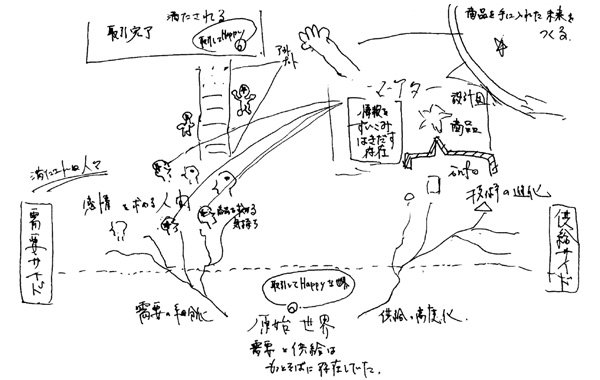 満たされる
取引完了
取引してHappy
アウトプット
商品を手に入れた未来を
つくる
マーケター
情報を
すいこみ
はきだす
存在
設計図
商品
info
技術の進化
感情を求める人
商品を求める
気持ち
需要サイド
供給サイド
取引してHappyな世界
需要の細分化
原始世界
供給の高度化
需要と供給は
もっとそばに存在していた。